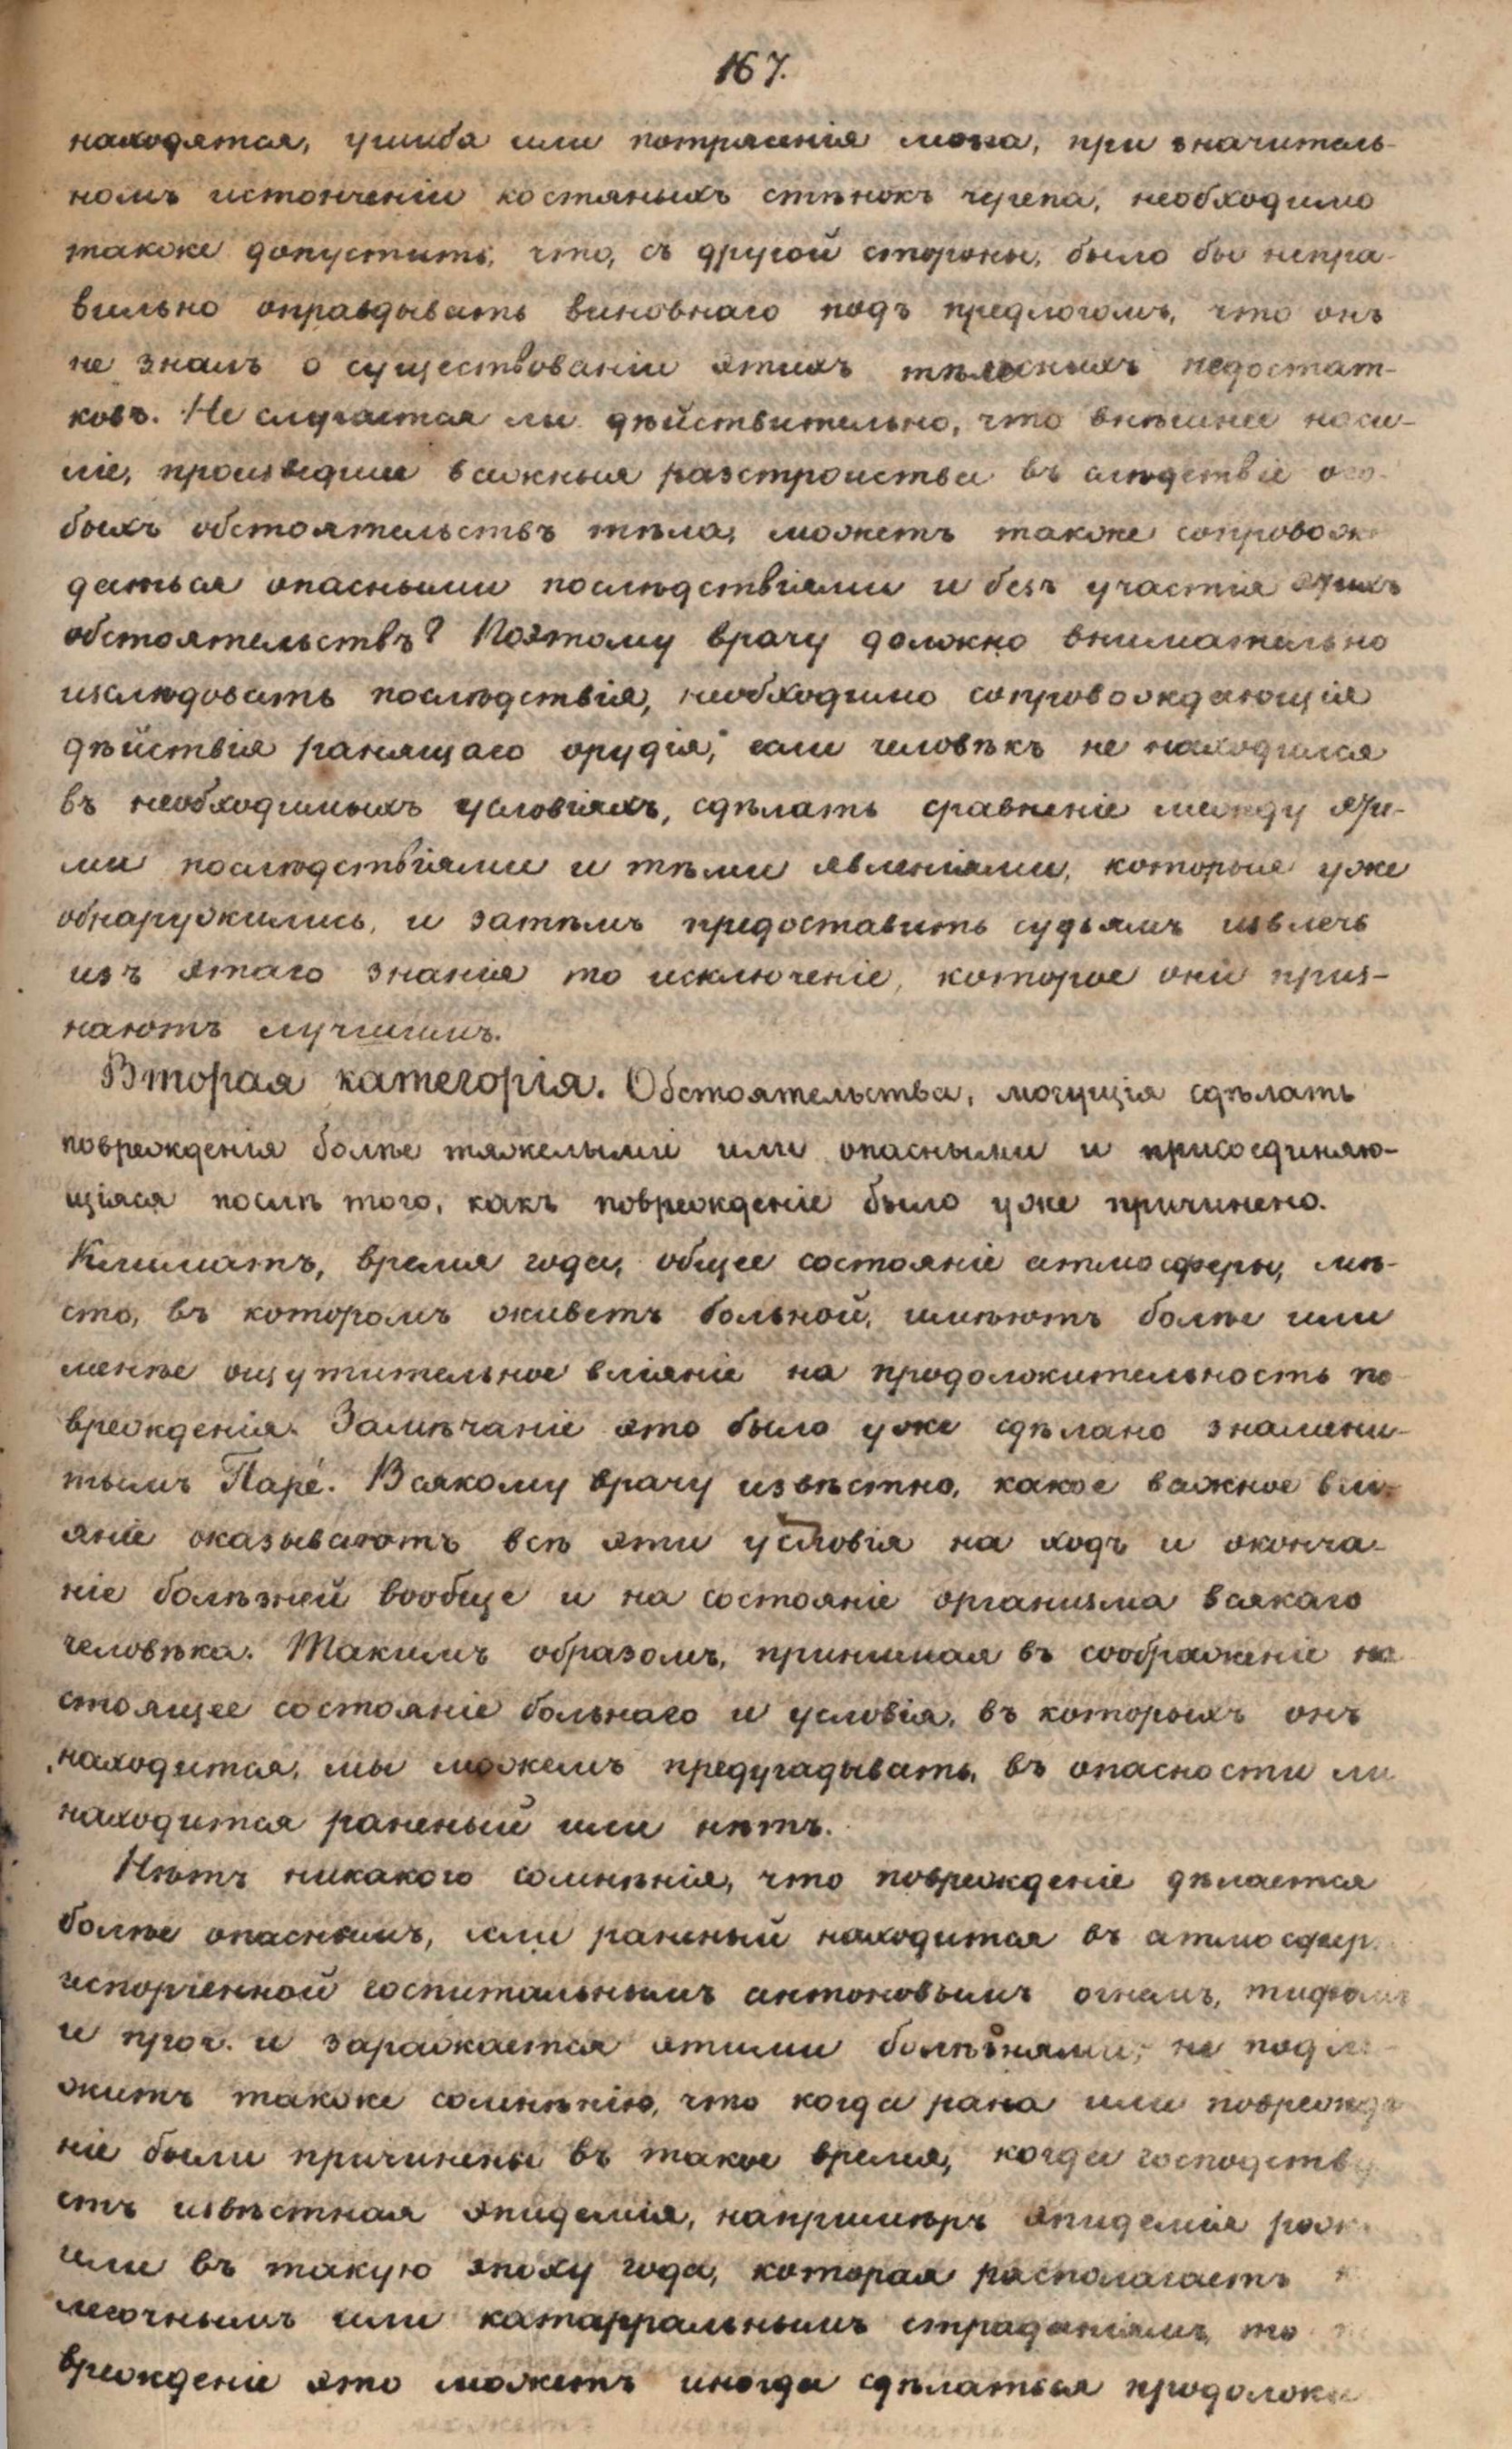 167.
находятся, ушиба или потрясенія мозга, при значитель-
номъ истонченіи костяныхъ стѣнокъ черепа, необходимо
также допустить, что, съ другой стороны, было бы непра-
вильно оправдывать виновнаго подъ предлогомъ, что онъ
не зналъ о существованіи этихъ тѣлесныхъ недостат-
ковъ. Не случается ли дѣйствительно, что внѣшнее наси-
ліе, произведшее важныя разстройства въ слѣдствіе осо-
быхъ обстоятельствъ тѣла, можетъ также сопровож
даться опасными послѣдствіями и безъ участія этихъ
обстоятельствъ? Поэтому врачу должно внимательно
изслѣдовать послѣдствія, необходимо сопровождающія
дѣйствія ранящаго орудія, если человѣкъ не находился
въ необходимыхъ условіяхъ, сдѣлать сравненіе между эти-
ми послѣдствіями и тѣми явленіями, которыя уже
обнаружились, и затѣмъ предоставить судьямъ извлечь
изъ этаго знанія то исключеніе, которое они приз-
наютъ лучшимъ.
Вторая категорія. Обстоятельства, могущія сдѣлать
поврежденія болѣе тяжелыми или опасными и присоединяю-
щіяся послѣ того, какъ поврежденіе было уже причинено.
Климатъ, время года, общее состояніе атмосферы, мѣ-
сто, въ которомъ живетъ больной, имѣютъ болѣе или
менѣе ощутительное вліяніе на продолжительность по
врежденія. Замѣчаніе это было уже сдѣлано знамени-
тымъ Паре́. Всякому врачу извѣстно, какое важное влі-
яніе оказываютъ всѣ эти условія на ходъ и оконча-
ніе болѣзней вообще и на состояніе организма всякаго
человѣка. Такимъ образомъ, принимая въ соображеніе на
стоящее состояніе больнаго и условія, въ которыхъ онъ
находится, мы можемъ предугадывать, въ опасности ли
находится раненый или нѣтъ.
Нѣтъ никакого сомнѣнія, что поврежденіе дѣлается
болѣе опаснымъ, если раненый находится въ атмосфер
испорченной госпитальнымъ антоновымъ огнемъ, тифомъ
и проч. и заражается этими болѣзнями; не подле
житъ также сомнѣнію, что когда рана или поврежде
ніе были причинены въ такое время, когда господству
етъ извѣстная эпидемія, напримѣръ эпидемія рож
или въ такую эпоху года, которая располагаетъ к
легочнымъ или катарральнымъ страданіямъ, то по
врежденіе это можетъ иногда сдѣлаться продолжи